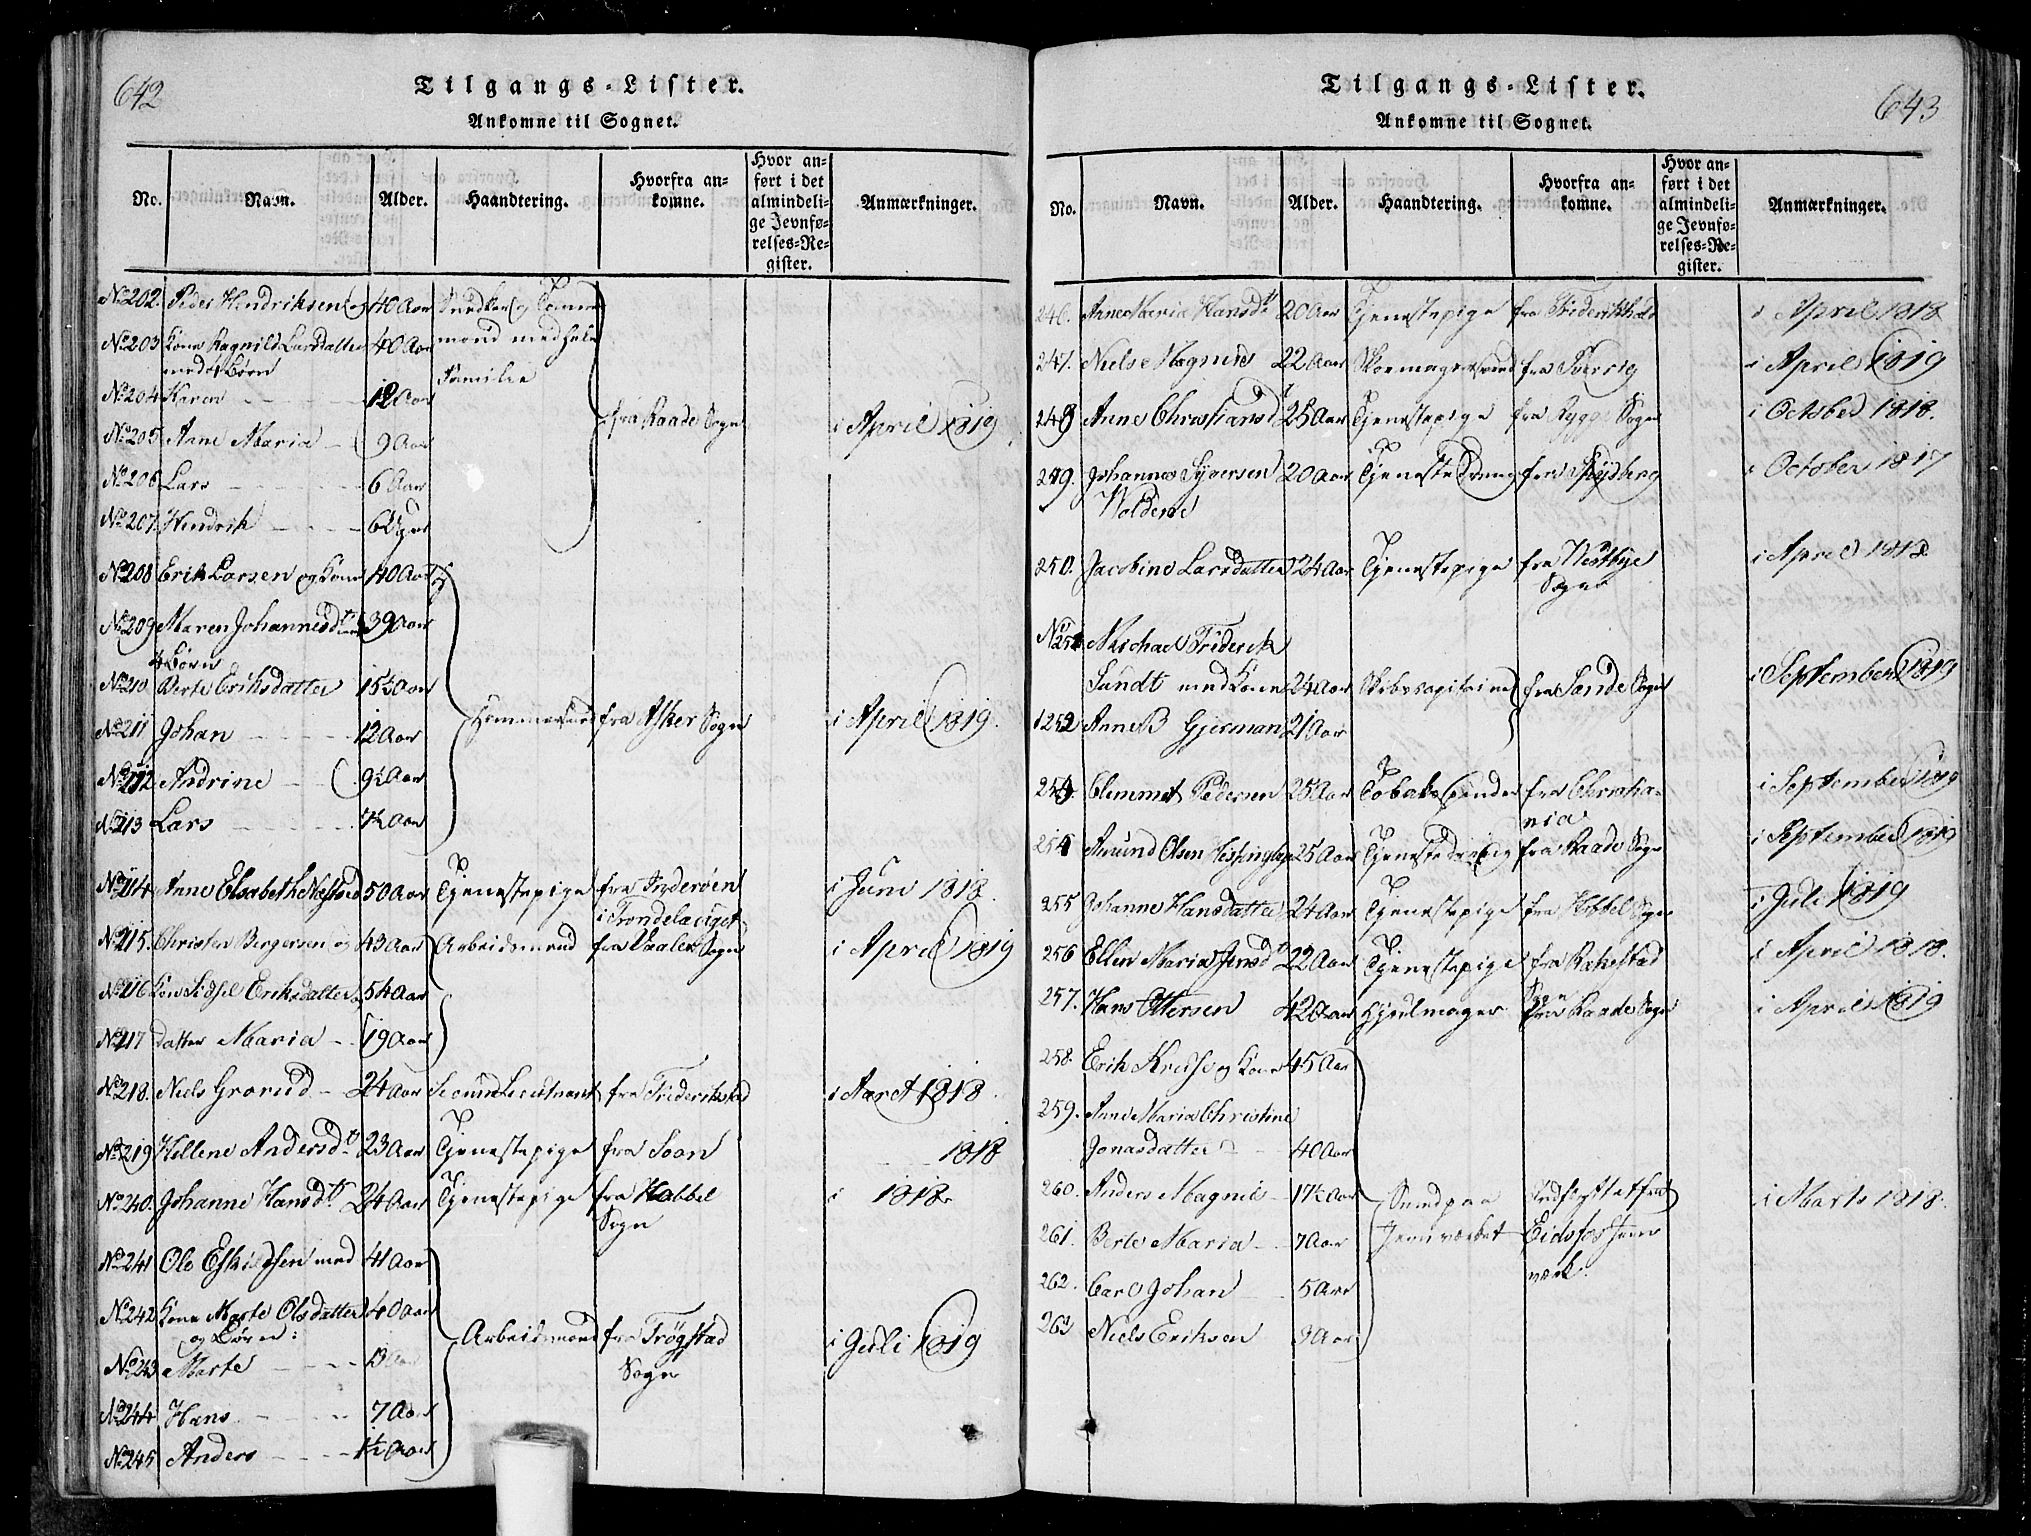 642
Tilgangs-Lister.
Ankomne til Sognet.
No. Navn. Alder. Haandtering. Hvorfra ankomne. Hvor anført i det almindelige Jevnførelses-Register. Anmærkninger.
No 202. Peder Hendriksen og 40 Aar
No 203 Kone Ragnild Larsdatter 40 Aar mand med hele
med 4 Børn Familie
No 204 Karen 12 Aar
No 205 Anne Maria 9 Aar fra Raade Sogn i April 1819
No 206 Lars 6 Aar
No 207 Hendrik 6 Uger
No 208 Erik Larsen og Kone 40 Aar
No 209 Maren Johannesdtr 39 Aar
4 Børn
No 210 Berte Eriksdatter 15½ Aar
No 211 Johan 12 Aar fra Asker Sogn i April 1819.
No 212 Andrine 9½ Aar
No 213 Lars Aar
No 214 Anne Elisabeth 50 Aar Tjenestepige fra Inderøen i Juni 1818.
i Trondelaget
No 215. Christen Birgersen og 43 Aar Arbeidsmand fra Vaaler Sogn i April 1819
No 216 Kone Sidsel Eriksdatter 54 Aar
No 217 datter Maria 19 Aar
No 218. Niels Grorud 24 Aar Secund Lieutnant fra Friderikstad i Aaret 1818.
No 219 Hellene Andersdtr 23 Aar Tjenestepige fra Soon 1818
No 240. Johanne Hansdtr 24 Aar Tjenestepige fra Habbel i 1818.
Sogn
No 241 Ole Eskildsen med 41 Aar
No 242 Kone Marte Olsdatter 40 Aar
og Børn: Arbeidsmand fra Trøgstad i Juli 1819
No 243 Marte 13 Aar Sogn
No 244 Hans 7 Aar
No 245 Anders 1½ Aar
643
Tilgangs-Lister.
Ankomne til Sognet.
No. Navn. Alder. Haandtering. Hvorfra ankomne. Hvor anført i det almindelige Jevnførelses-Register. Anmærkninger.
246. Anne Maria Hansdtr 20 Aar Tjenestepige fra Friderikhald i April 1818
247. Niels Magnus 22 Aar Skomagersvend fra Sverrig i April 1819
248 Anne Christiansdtr 25 Aar Tjenestepige fra Rygge Sogn i October 1818.
249. Johannes Syversen 20 Aar Tjenestedreng fra Spydberg i October 1817
Woldene
250. Jacobine Larsdatter 24 Aar Tjenestepige fra Westbye i April 1818
Sogn
No 251 Michael Friderik
Sundt med Kone 24 Aar Skibscapitain fra Sande Sogn i September 1819
252 Anne B Gjerman 21 Aar
253. Clemmet Pedersen 25 Aar Tobakspinder fra Christiania i September 1819
254 Amund Olsen 25 Aar Tjenestedreng fra Raade Sogn i September 1819
255 Johanne Hansdatter 24 Aar Tjenestepige fra Hobbel Sogn i Juli 1819
256 Ellen Maria Jensdtr 22 Aar Tjenestepige fra Rakestad i April 1818.
Sogn
257. Hans Ottersen 42 Aar Hjulmager fra Raade Sogn i April 1819
258. Erik Kruse og Kone 45 Aar
259. Anne Maria Christine
Jonasdatter 40 Aar
260. Anders Magnil 17½ Aar Smed paa Indflyttet fra i Marts 1818.
261. Berte Maria 7 Aar Jernværket Eidsfos Jern
262. Carl Johan 5 Aar værk.
263 Niels Eriksen 3 Aar